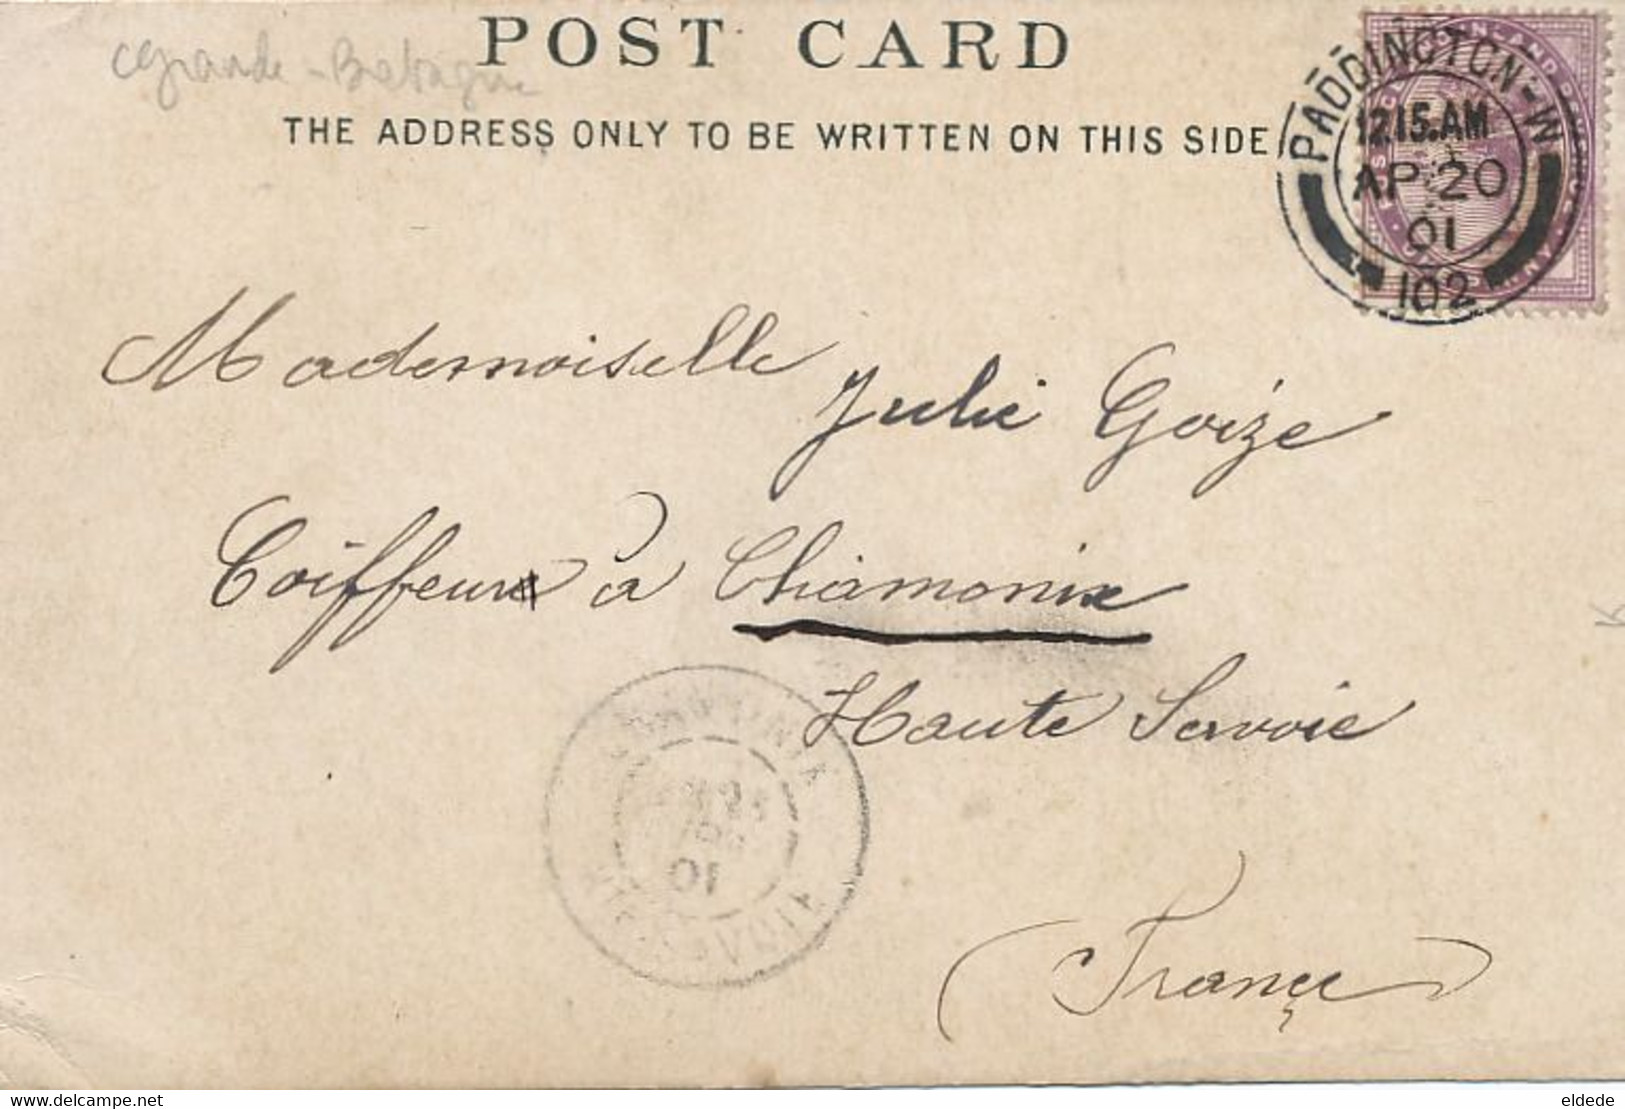 Grande-Bretagne
POST CARD
THE ADDRESS ONLY TO BE WRITTEN ON THIS SIDE
PADDINGTON-W
12.15.AM
AP 20
01
102
Mademoiselle Julie Goize
Coiffeur à Chamonix
Haute Savoie
01
France
delcampe.net
eldede